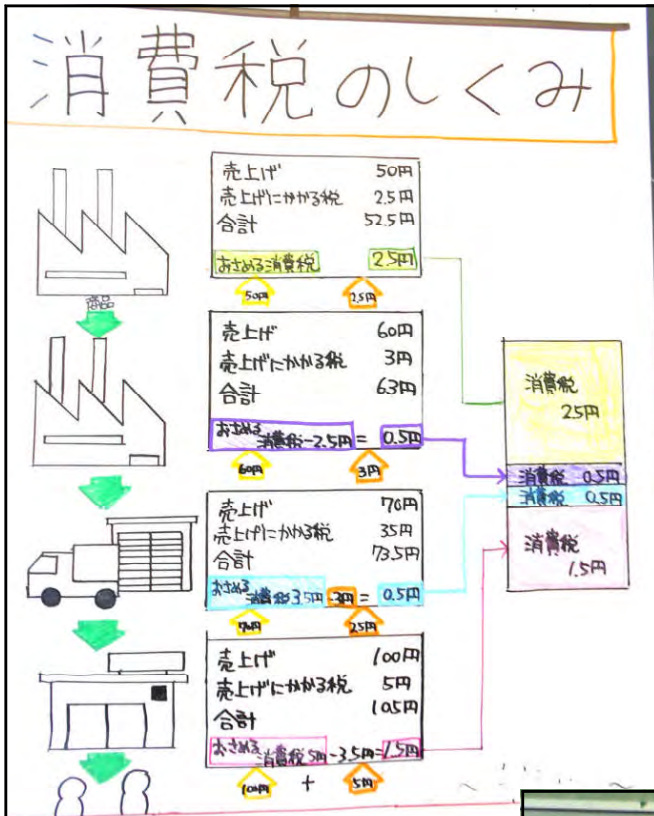 消費税のしくみ
売上げ 50円
売上げにかかる税 2.5円
合計 52.5円
おさめる消費税 2.5円
50円 2.5円
商品
売上げ 60円
売上げにかかる税 3円
合計 63円
おさめる消費税-2.5円= 0.5円
60円 3円
売上げ 70円
売上げにかかる税 35円
合計 73.5円
おさめる消費税3.5円-3円= 0.5円
70円 25円
売上げ 100円
売上げにかかる税 5円
合計 105円
おさめる消費税5円-3.5円=1.5円
100円 + 5円
消費税
25円
消費税 0.5円
消費税 0.5円
消費税
1.5円